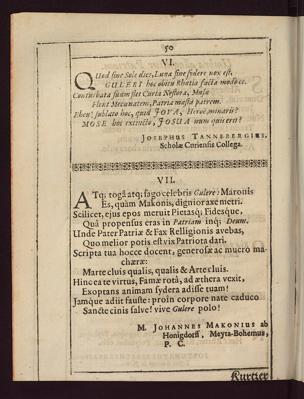 50
VI.
QUod sine Sole dies, Luna sine sydere nox est,
GULERI hoc obitu Rhætia facta modo est.
Conturbata suum flet Curia Nestora, Musæ
Flent Mecænatem, Patria mæsta patrem.
Eheu! sublato hoc, quid JOVA, Heroë, minaris?
MOSE hoc extincto, JOSUA num quis erit?
JOSEPHUS TANNEBERGIUS,
Scholæ Curiensis Collega.
VII.
ATq; togâ atq; sago celebris Gulere: Maronis
Es, quàm Makonis, dignior axe metri.
Scilicet, ejus epos meruit Pietasq; Fidesque,
Quâ propensus eras in Patriam inq; Deum.
Unde Pater Patriæ & Fax Relligionis avebas,
Quo melior potis est vix Patriota dari.
Scripta tua hocce docent; generosæ ac mucro machæræ:
Marte cluis qualis, qualis & Arte cluis.
Hinc ea te virtus, Famæ rotâ, ad æthera vexit,
Exoptans animam sydera adisse tuam!
Jamque adiit fauste: proin corpore nate caduco
Sancte cinis salve! vive Gulere polo!
M. JOHANNES MAKONIUS ab
Honigdorff, Meyta-Bohemus,
P. C.
Kurtzer